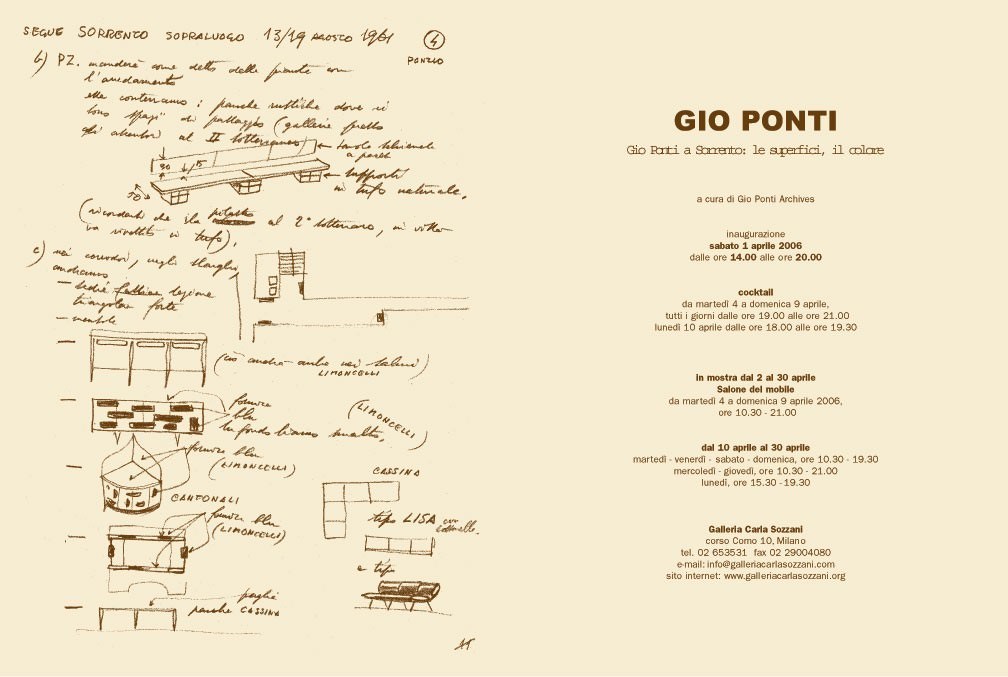 SEGUE SORRENTO SOPRALUOGO 13/19 AGOSTO 1961
4
PONZIO
b) P.Z. manderà come detto delle piante con
l'arredamento
esse conterranno: panche rustiche dove vi
sono "spazi" di passaggio (gallerie presso
gli ascensori al II sotterraneo)
tavola schienale
a parete
30
15
50
supporti
in tufo naturale.
(ricordarsi che il pilastro al 2° sotterraneo, in vista
va rivestito in tufo).
c) nei corridoi, negli slarghi,
andranno
sedie
triangolare forte
mensole
(ciò andrà anche nei saloni)
LIMONCELLI
formica
blu
(LIMONCELLI)
in fondo bianco smalto,
formica blu
(LIMONCELLI)
CASSINA
CANTONALI
formica blu
(LIMONCELLI)
tipo LISA con
e tipo
paglia
panche CASSINA
GIO PONTI
Gio Ponti a Sorrento: le superfici, il colore
a cura di Gio Ponti Archives
inaugurazione
sabato 1 aprile 2006
dalle ore 14.00 alle ore 20.00
cocktail
da martedì 4 a domenica 9 aprile,
tutti i giorni dalle ore 19.00 alle ore 21.00
lunedì 10 aprile dalle ore 18.00 alle ore 19.30
in mostra dal 2 al 30 aprile
Salone del mobile
da martedì 4 a domenica 9 aprile 2006,
ore 10.30 - 21.00
dal 10 aprile al 30 aprile
martedì - venerdì - sabato - domenica, ore 10.30 - 19.30
mercoledì - giovedì, ore 10.30 - 21.00
lunedì, ore 15.30 - 19.30
Galleria Carla Sozzani
corso Como 10, Milano
tel. 02 653531 fax 02 29004080
e-mail: info@galleriacarlasozzani.com
sito internet: www.galleriacarlasozzani.org